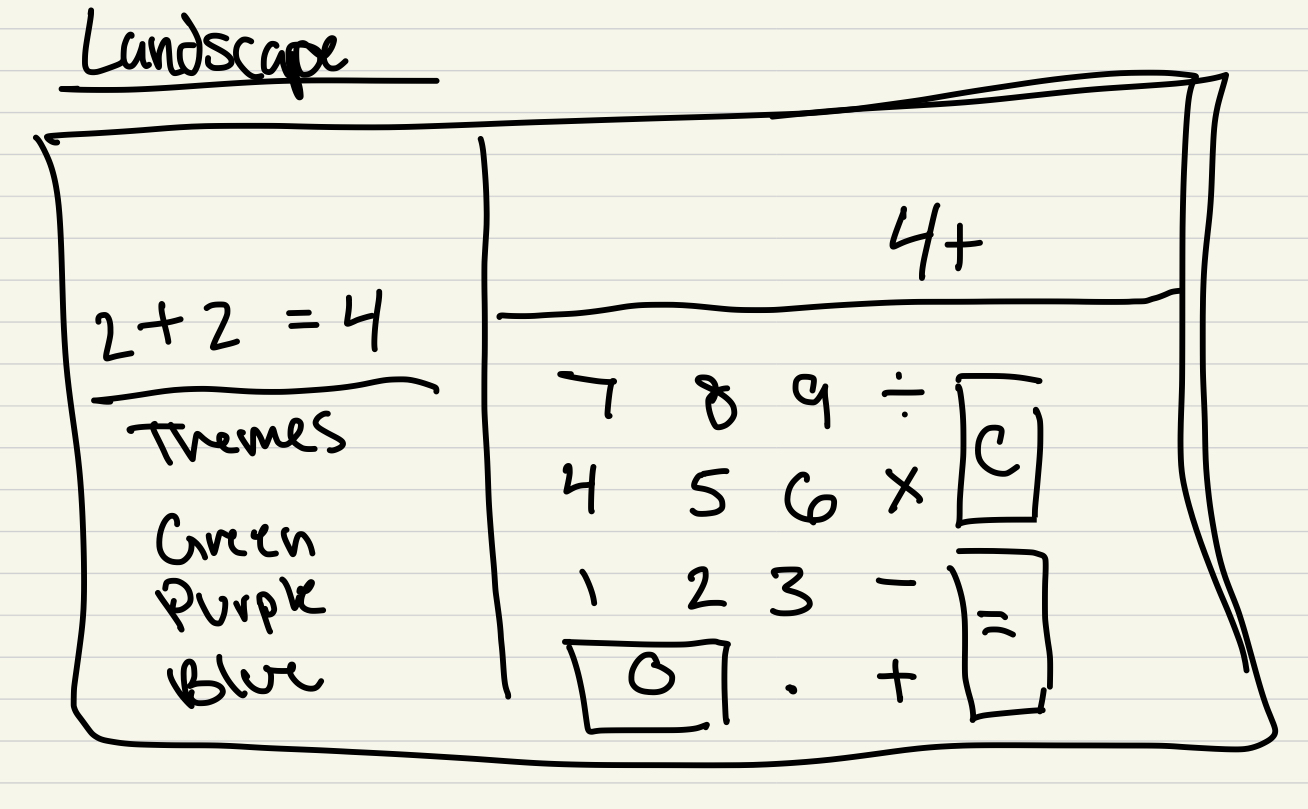 Landscape
2 + 2 = 4
Themes
Green
Purple
Blue
4+
7 8 9 ÷ C
4 5 6 ×
1 2 3 - =
0 . +